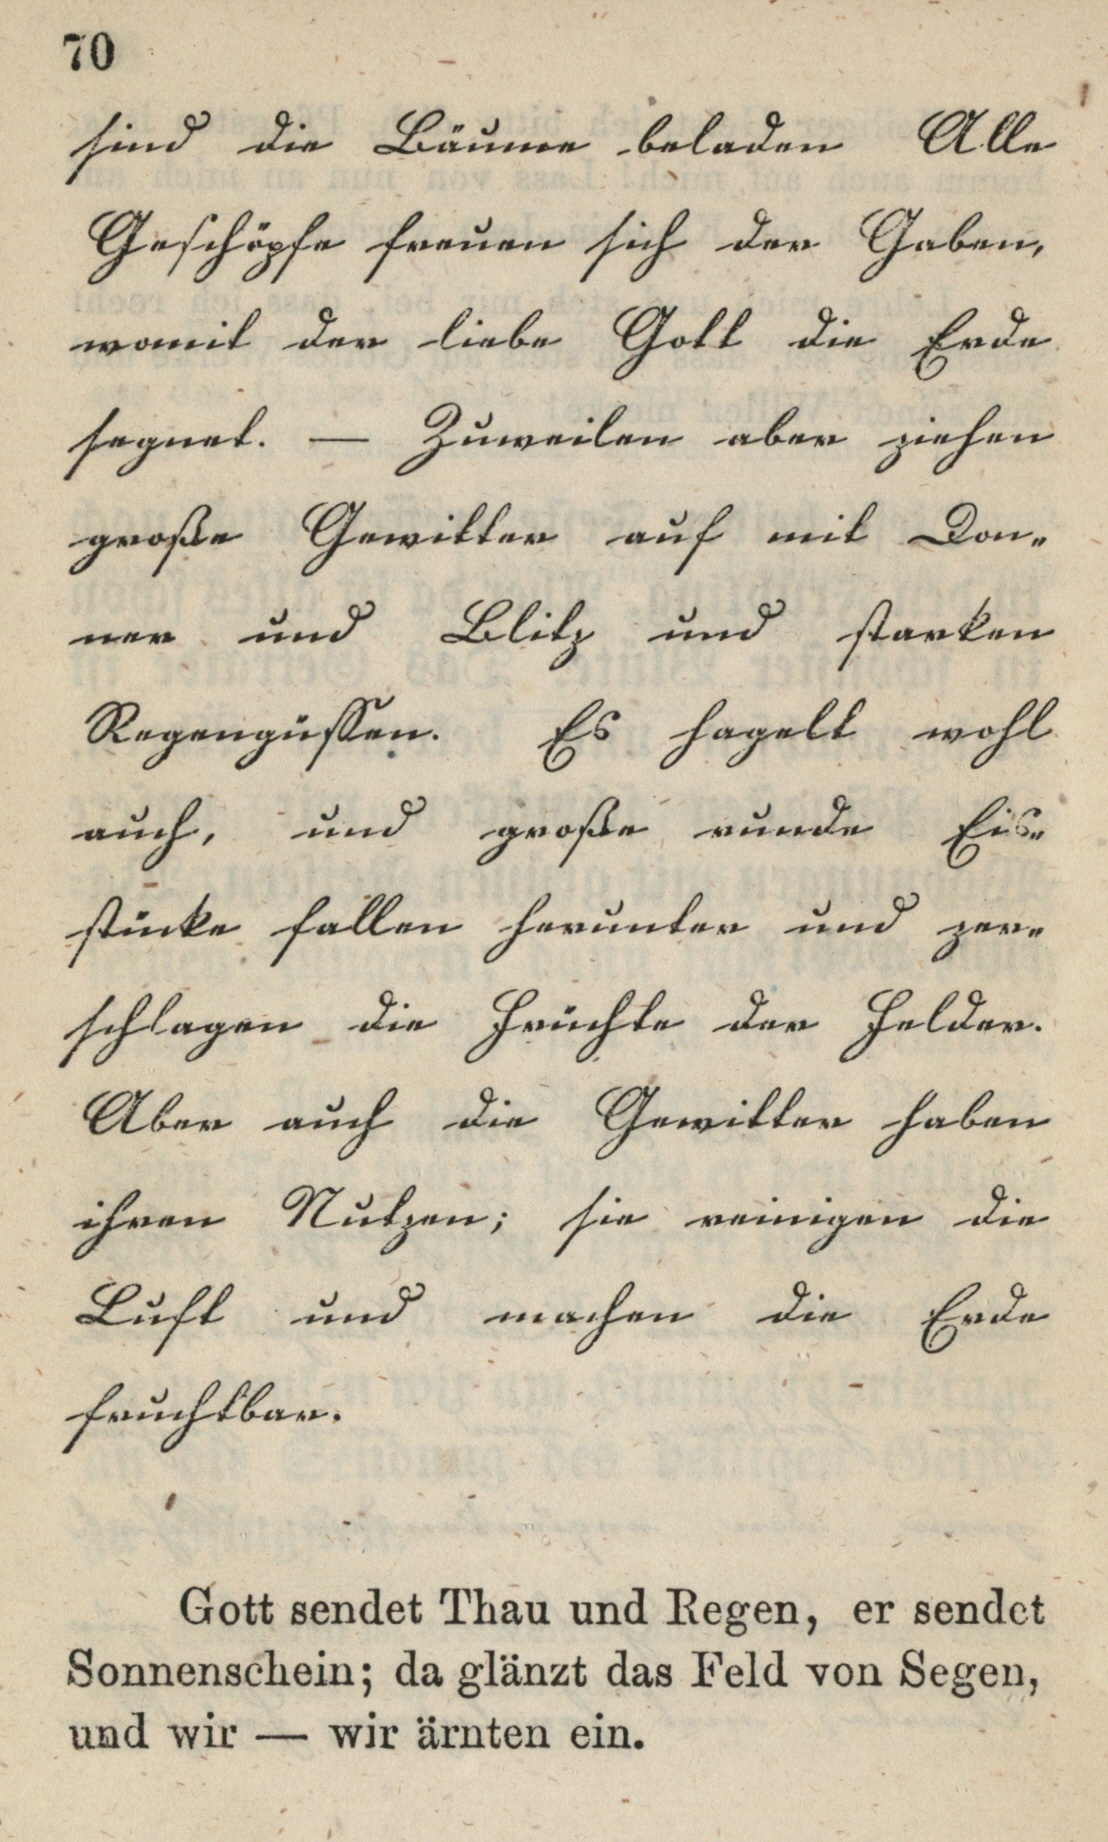 70
sind die Bäume beladen Alle
Geschöpfe freuen sich der Gaben,
womit der liebe Gott die Erde
segnet. — Zuweilen aber ziehen
große Gewitter auf mit Don-
ner und Blitz und starken
Regengüssen. Es hagelt wohl
auch, und große runde Eis-
stücke fallen herunter und zer-
schlagen die Früchte der Felder.
Aber auch die Gewitter haben
ihren Nutzen; sie reinigen die
Luft und machen die Erde
fruchtbar.
Gott sendet Thau und Regen, er sendet
Sonnenschein; da glänzt das Feld von Segen,
und wir — wir ärnten ein.